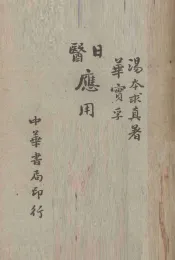 湯本求真著
華實孚
日醫應用
中華書局印行